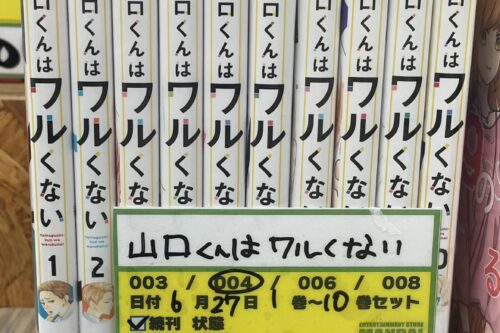 口くんはワルくない
yamaguchi-kun wa warukunai
1
口くんはワルくない
yamaguchi-kun wa warukunai
2
口くんはワルくな
口くんはワルくな
口くんはワルくな
口くんはワルくな
口くんはワルくな
口くんはワルくな
口くんはワルくな
口くんはワルくない
0
山口くんはワルくない
003 / 004 / 006 / 008
日付 6月27日 1巻〜10巻セット
☑続刊 状態
ENTERTAINMENT STORE
MANDAI